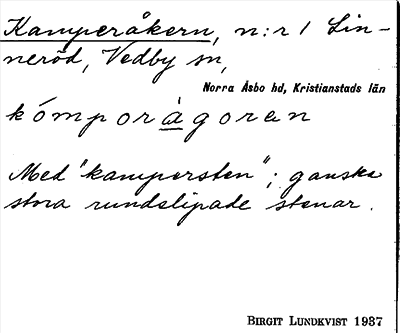 Kamperåkern, n:r 1 Lin-
neröd, Vedby sn,
Norra Åsbo hd, Kristianstads län
kómporàgoren
Med "kampersten"; ganska
stora rundslipade stenar.
BIRGIT LUNDKVIST 1937